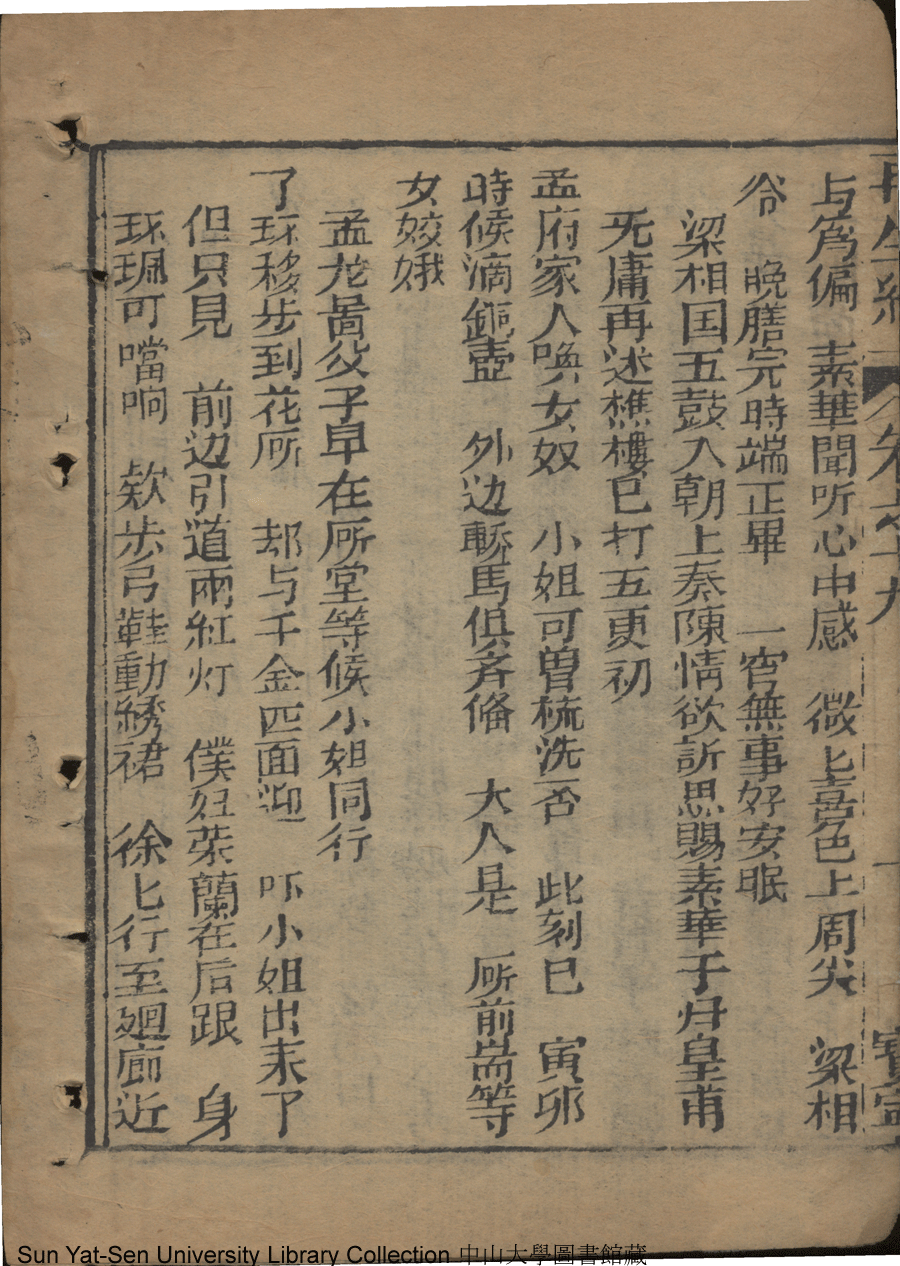 再生緣 卷之十九 寶寧
与爲偏 素華聞听心中感 微匕喜色上周尖 梁相
爷 晚膳完時端正畢 一宵無事好安眠
梁相国五鼓入朝上奏陳情欲訴思賜素華于归皇甫
旡庸再述樵樓已打五更初
孟府家人唤女奴 小姐可曽梳洗否 此刻已 寅卯
時候滴銅壺 外边轎馬俱斉偹 大人是 厮前耑等
女姣娥
孟龙啚父子早在厮堂等候小姐同行
了环移步到花厮 却与千金四面迎 吓小姐出耒了
但只見 前边引道兩紅灯 僕妇荣蘭在后跟 身
环珮可噹响 欵步弓鞋動綉裙 徐匕行至廻廊近
Sun Yat-Sen University Library Collection 中山大學圖書館藏